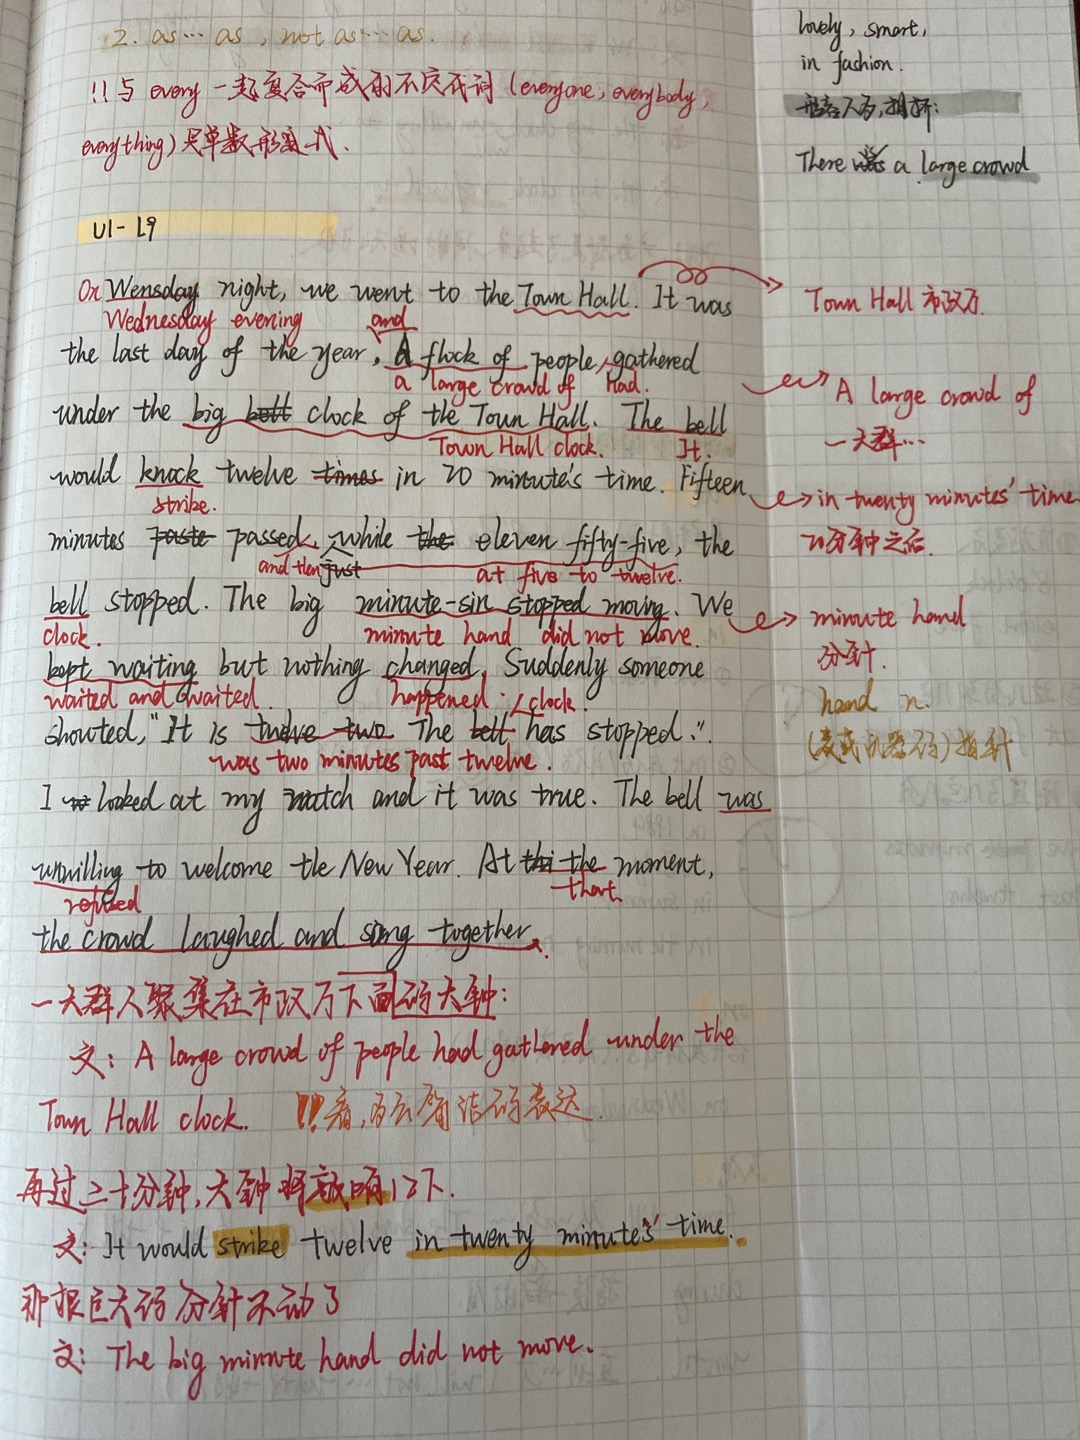 2. as… as, not as… as.
!! 与 every 一起复合而成的不定代词 (everyone, everybody,
everything) 是单数形式.
U1- L9
On Wensday night, we went to the Town Hall. It was
Wednesday evening and
the last day of the year, A flock of people, gathered
a large crowd of had.
under the big bell clock of the Town Hall. The bell
Town Hall clock. It.
would knock twelve times in 20 minute's time. Fifteen
strike.
minutes paste passed, while the eleven fifty-five, the
and then just at five to twelve.
bell stopped. The big minute-sin stopped moving. We
clock. minute hand did not move.
kept waiting but nothing changed. Suddenly someone
waited and waited. happened. clock.
shouted, "It is twelve two The bell has stopped.".
was two minutes past twelve.
I looked at my match and it was true. The bell was
unwilling to welcome the New Year. At the moment,
refused that
the crowd laughed and sing together.
一大群人聚集在市政厅下面的大钟:
文: A large crowd of people had gathered under the
Town Hall clock. !!看,
再过二十分钟,大钟将敲响12下.
文: It would strike twelve in twenty minute's' time.
那根巨大的分针不动了
文: The big minute hand did not move.
lovely, smart,
in fashion.
形容人多,拥挤:
There was a large crowd
Town Hall 市政厅.
A large crowd of
一大群…
in twenty minutes' time
20分钟之后.
minute hand
分针.
hand n.
指针